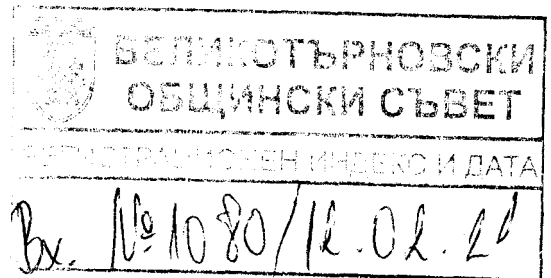 ВЕЛИКОТЪРНОВСКИ
ОБЩИНСКИ СЪВЕТ
РЕГИСТРАЦИОНЕН ИНДЕКС И ДАТА
Вх. № 1080/12.02.